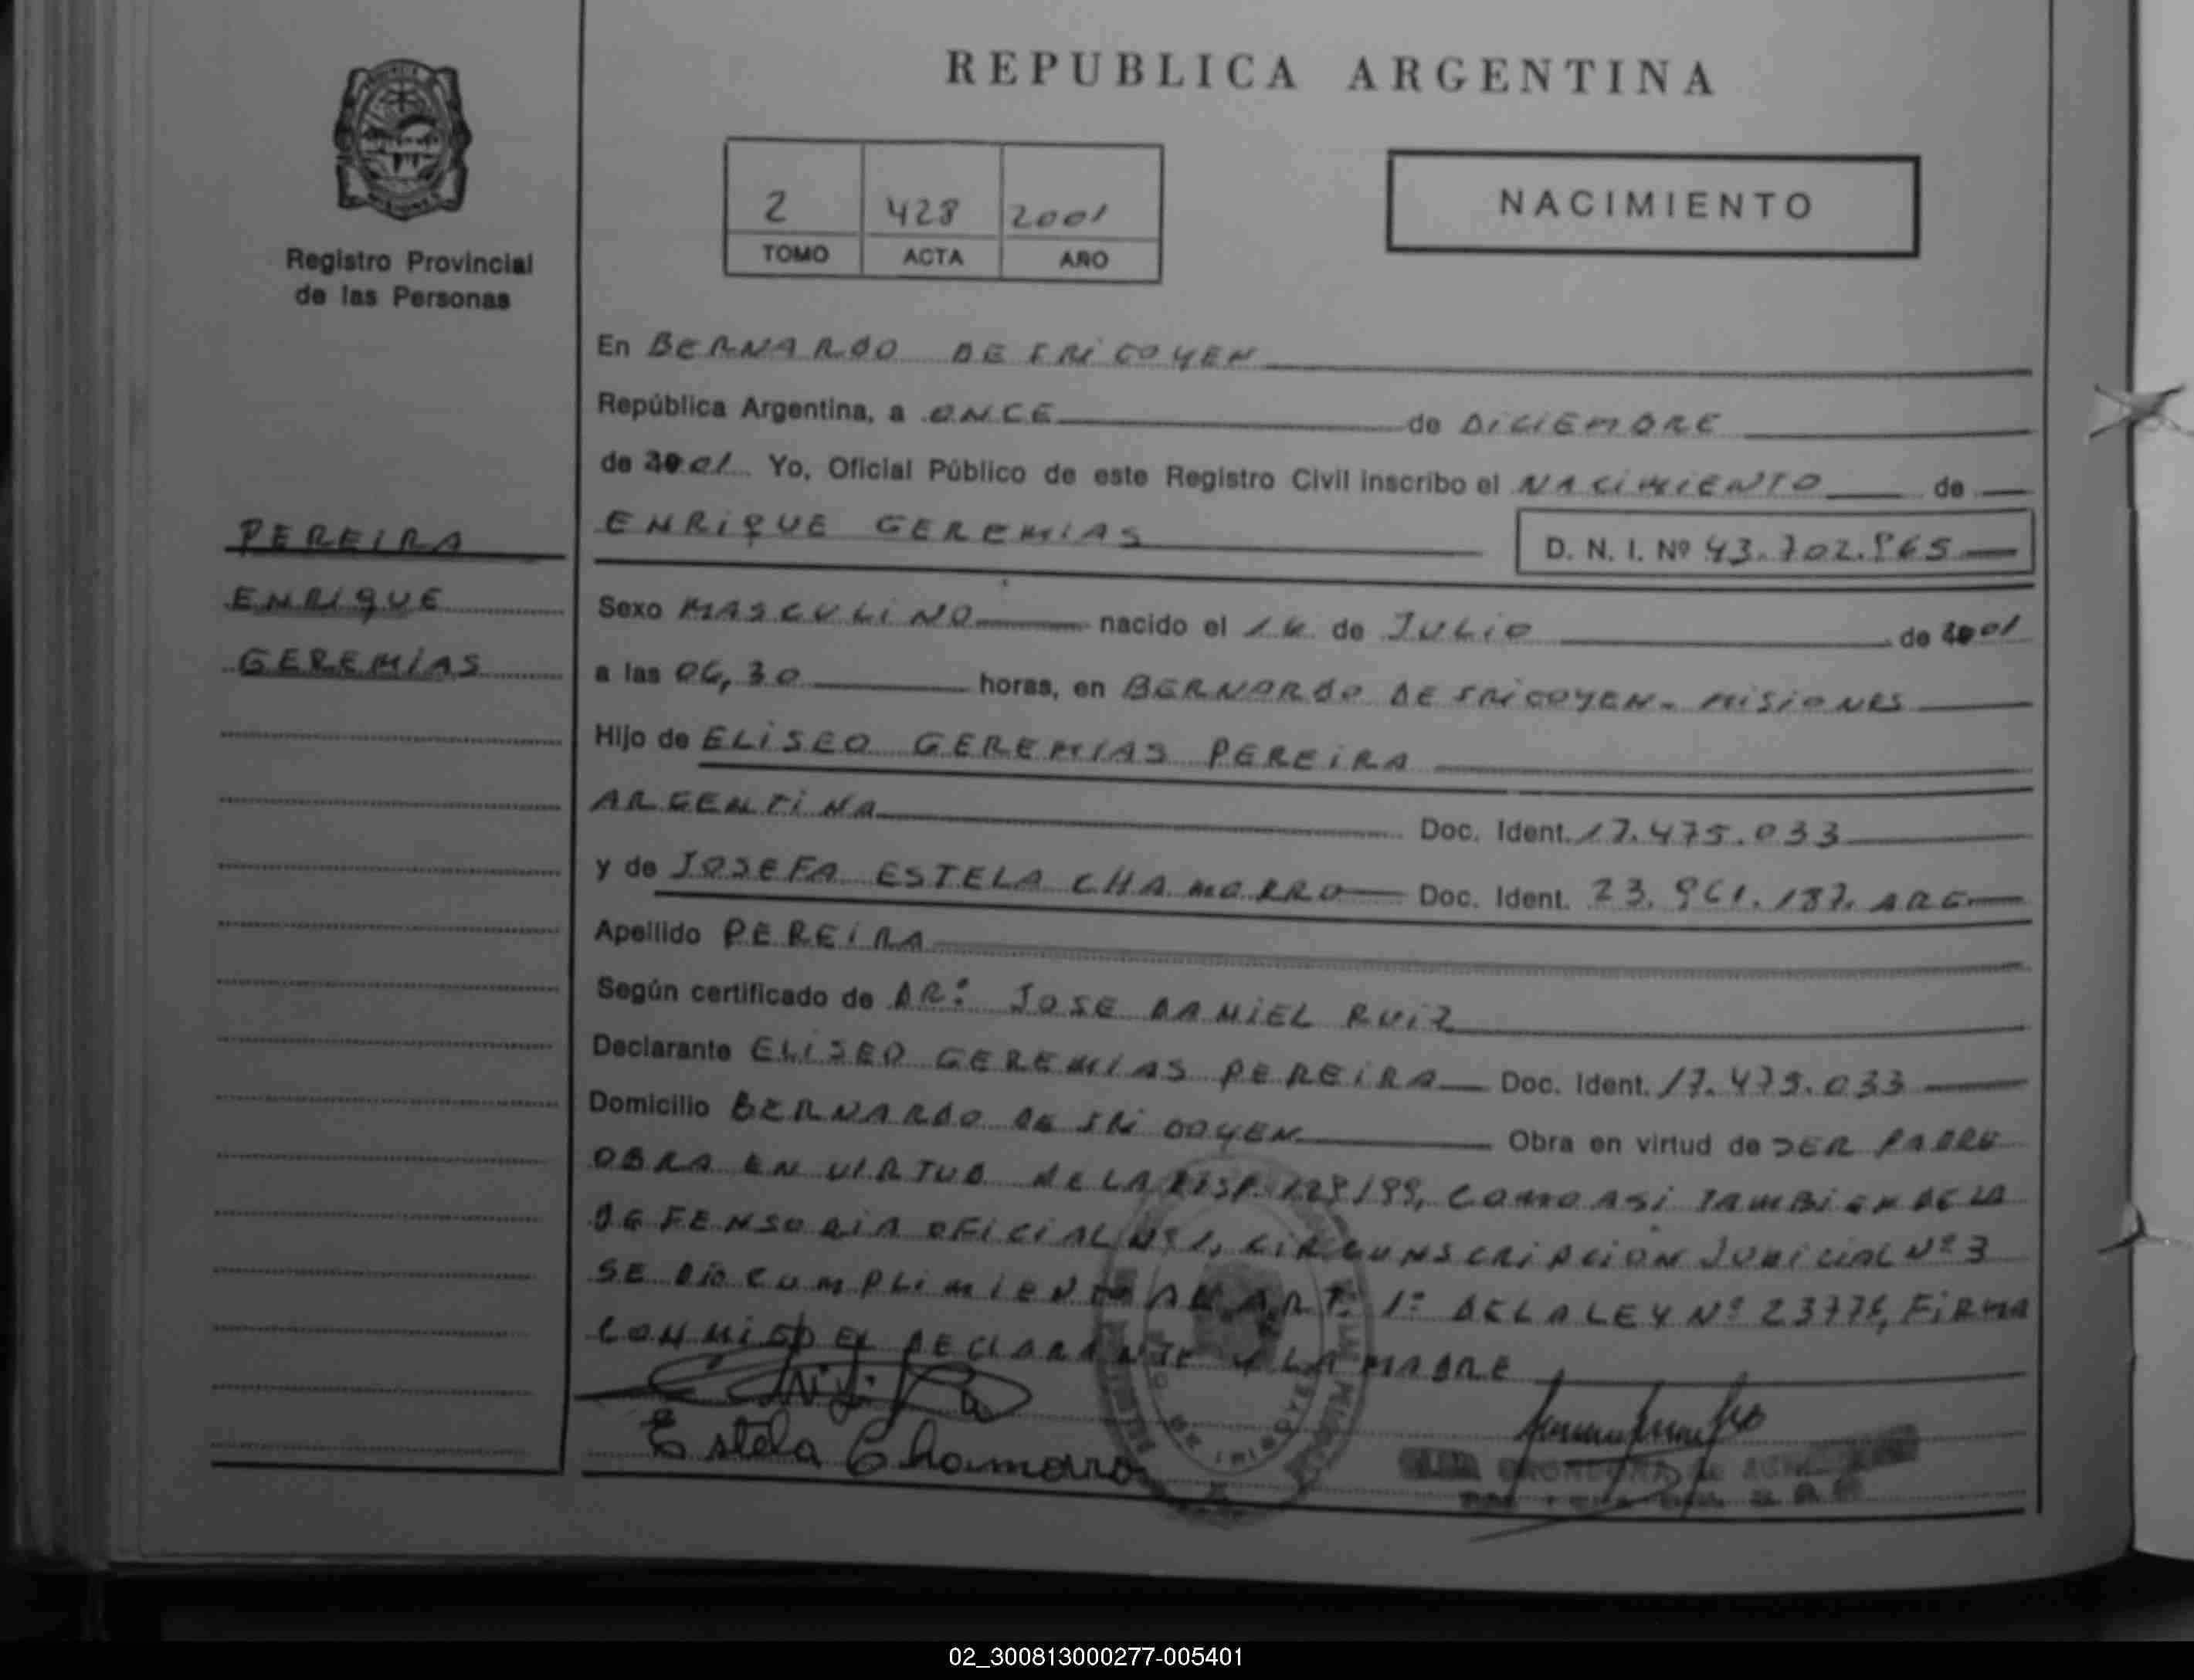 REPUBLICA ARGENTINA
2 428 2001
TOMO ACTA AÑO
NACIMIENTO
Registro Provincial
de las Personas
PEREIRA
ENRIQUE
GEREMIAS
En BERNARDO DE IRIGOYEN
República Argentina, a ONCE de DICIEMBRE
de 2001 Yo, Oficial Público de este Registro Civil inscribo el NACIMIENTO de
ENRIQUE GEREMIAS
D. N. I. Nº 43.702.965
Sexo MASCULINO nacido el de JULIO de 2001
a las 06,30 horas, en BERNARDO DE IRIGOYEN - MISIONES
Hijo de ELISEO GEREMIAS PEREIRA
ARGENTINA Doc. Ident. 17.475.033
y de JOSEFA ESTELA CHAMORRO Doc. Ident. 23.961.187. ARG
Apellido PEREIRA
Según certificado de DR: JOSE DANIEL RUIZ
Declarante ELISEO GEREMIAS PEREIRA Doc. Ident. 17.475.033
Domicilio BERNARDO DE IRIGOYEN Obra en virtud de SER PADRE
OBRA EN VIRTUD DE LA DISP. 129/99, COMO ASI TAMBIEN DE LA
DEFENSORIA OFICIAL Nº 1, CIRCUNSCRIPCION JUDICIAL Nº 3
SE DIO CUMPLIMIENTO AL ART. 1º DE LA LEY Nº 23776, FIRMA
CONMIGO EL DECLARANTE Y LA MADRE
Estela Chamorro
02_300813000277-005401